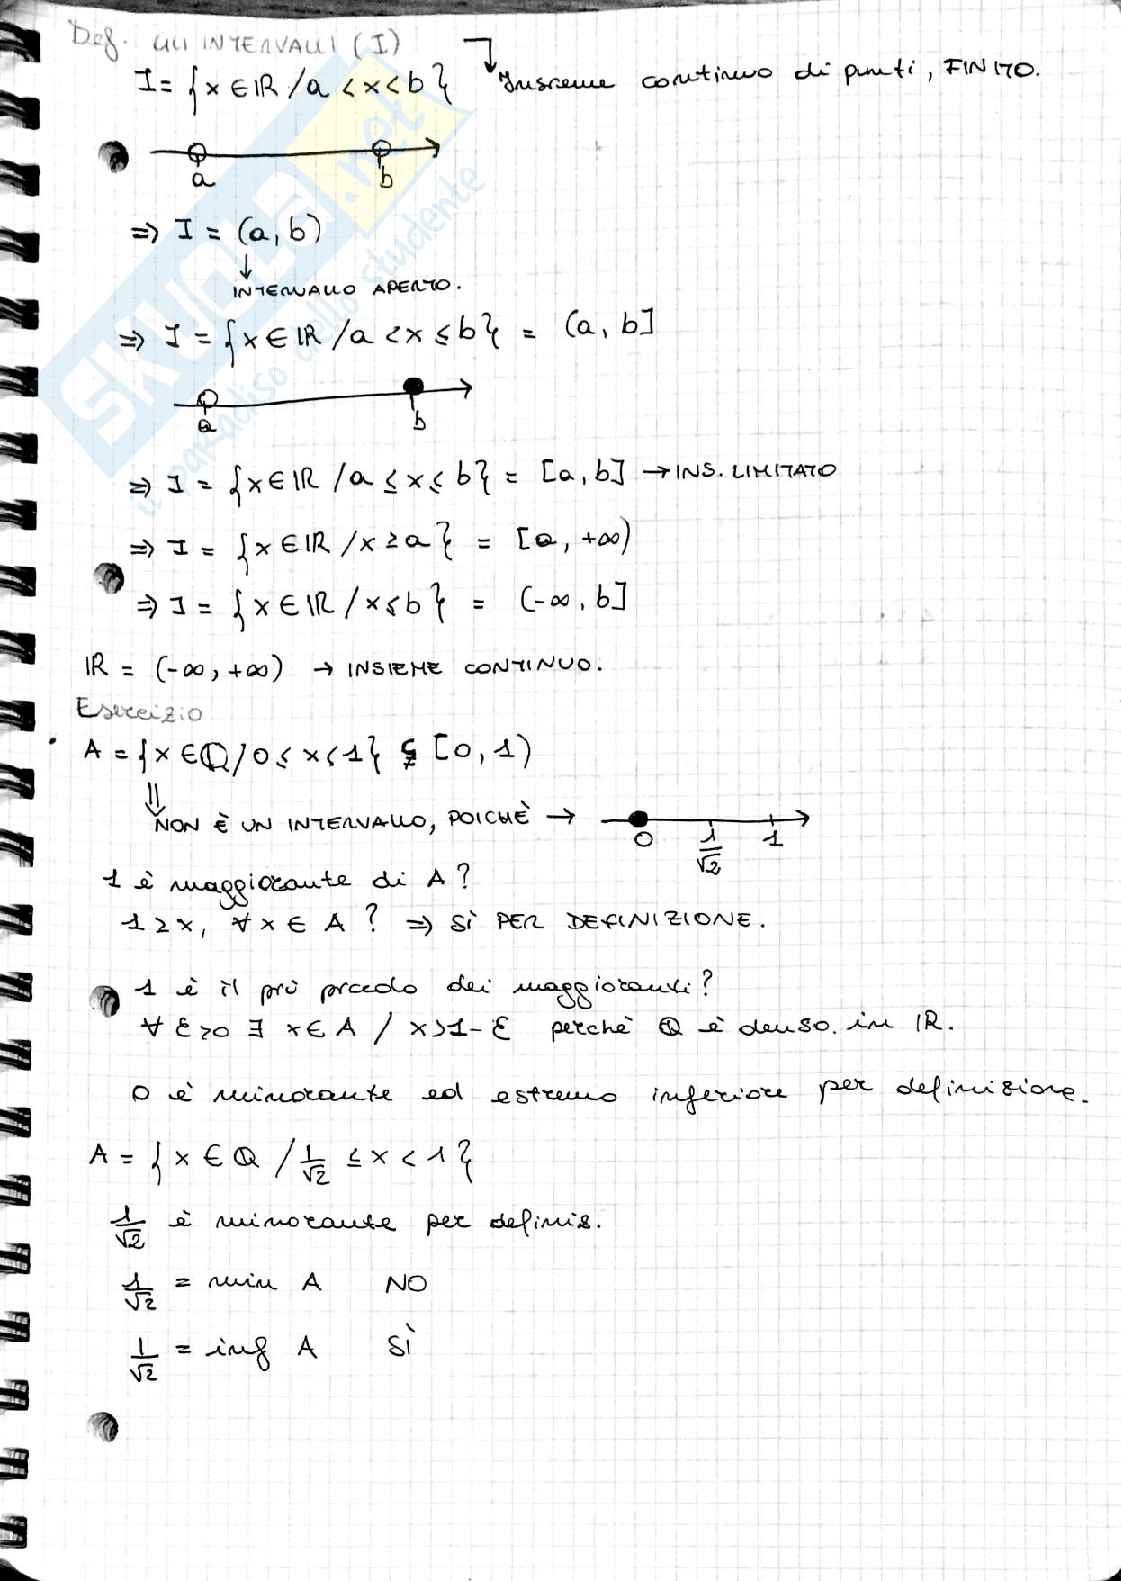 Def. GLI INTERVALLI (I)
I = {x ∈ IR / a < x < b} Insieme continuo di punti, FINITO.
a b
⇒ I = (a, b)
↓
INTERVALLO APERTO.
⇒ I = {x ∈ IR / a < x ≤ b} = (a, b]
a b
⇒ I = {x ∈ IR / a ≤ x ≤ b} = [a, b] → INS. LIMITATO
⇒ I = {x ∈ IR / x ≥ a} = [a, +∞)
⇒ I = {x ∈ IR / x ≤ b} = (-∞, b]
IR = (-∞, +∞) → INSIEME CONTINUO.
Esercizio
• A = {x ∈ Q / 0 ≤ x < 1} ⊊ [0, 1)
⇓
NON È UN INTERVALLO, POICHÈ →
0 1/√2 1
1 è maggiorante di A?
1 ≥ x, ∀ x ∈ A ? ⇒ SÌ PER DEFINIZIONE.
1 è il più piccolo dei maggioranti?
∀ ε > 0 ∃ x ∈ A / x > 1 - ε perchè Q è denso in IR.
0 è minorante ed estremo inferiore per definizione.
A = {x ∈ Q / 1/√2 ≤ x < 1}
1/√2 è minorante per definiz.
1/√2 = min A NO
1/√2 = inf A SÌ
SKUOLA.net
il paradiso dello studente